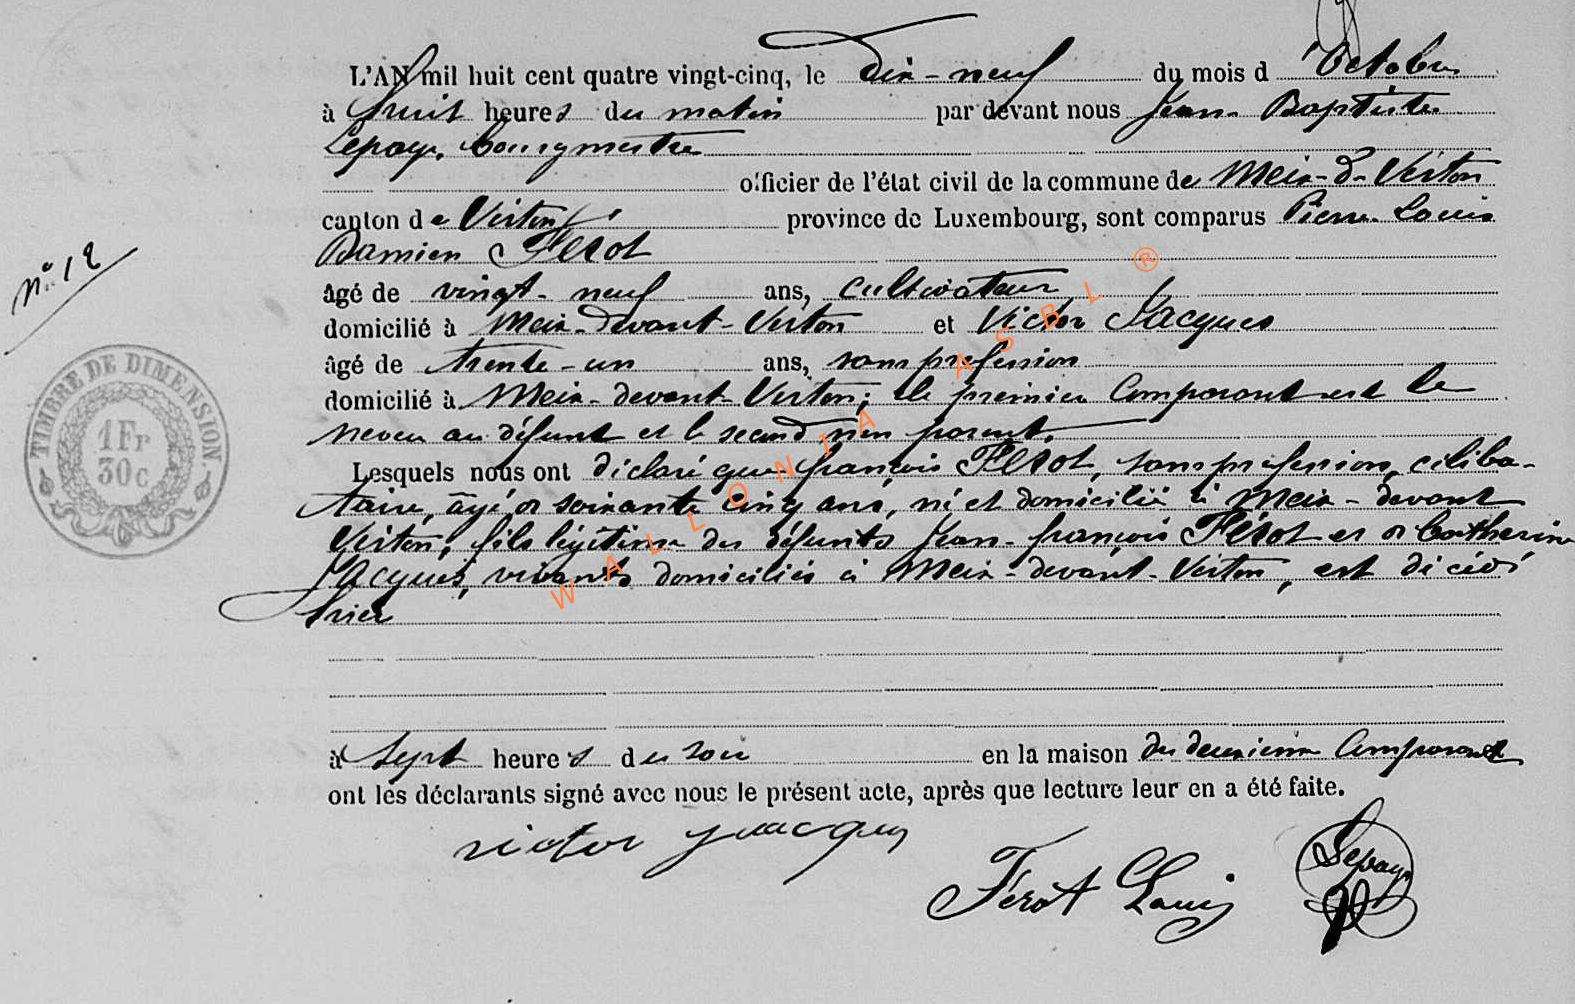 L'AN mil huit cent quatre vingt-cinq, le dix-neuf du mois d'Octobre
à huit heures du matin par devant nous Jean-Baptiste
Lepage, bourgmestre
officier de l'état civil de la commune de Meix-dt-Virton
canton de Virton province de Luxembourg, sont comparus Pierre Louis
Damien Férot
âgé de vingt-neuf ans, cultivateur
domicilié à Meix-devant-Virton et Victor Jacques
N° 12
âgé de trente-un ans, sans profession
domicilié à Meix-devant-Virton; le premier comparant est le
neveu au défunt et le second non parent.
Lesquels nous ont déclaré que françois Férot, sans profession, céliba-
taire, âgé de soixante cinq ans, né et domicilié à Meix-devant
Virton, fils légitime des défunts Jean-françois Férot et de Catherine
Jacques, vivants domiciliés à Meix-devant-Virton, est décédé
hier
à sept heures du soir en la maison du deuxième comparant
ont les déclarants signé avec nous le présent acte, après que lecture leur en a été faite.
victor jacques
Férot Louis
Lepage
TIMBRE DE DIMENSION.
1 Fr
30 c
WALLONIA ASBL ®